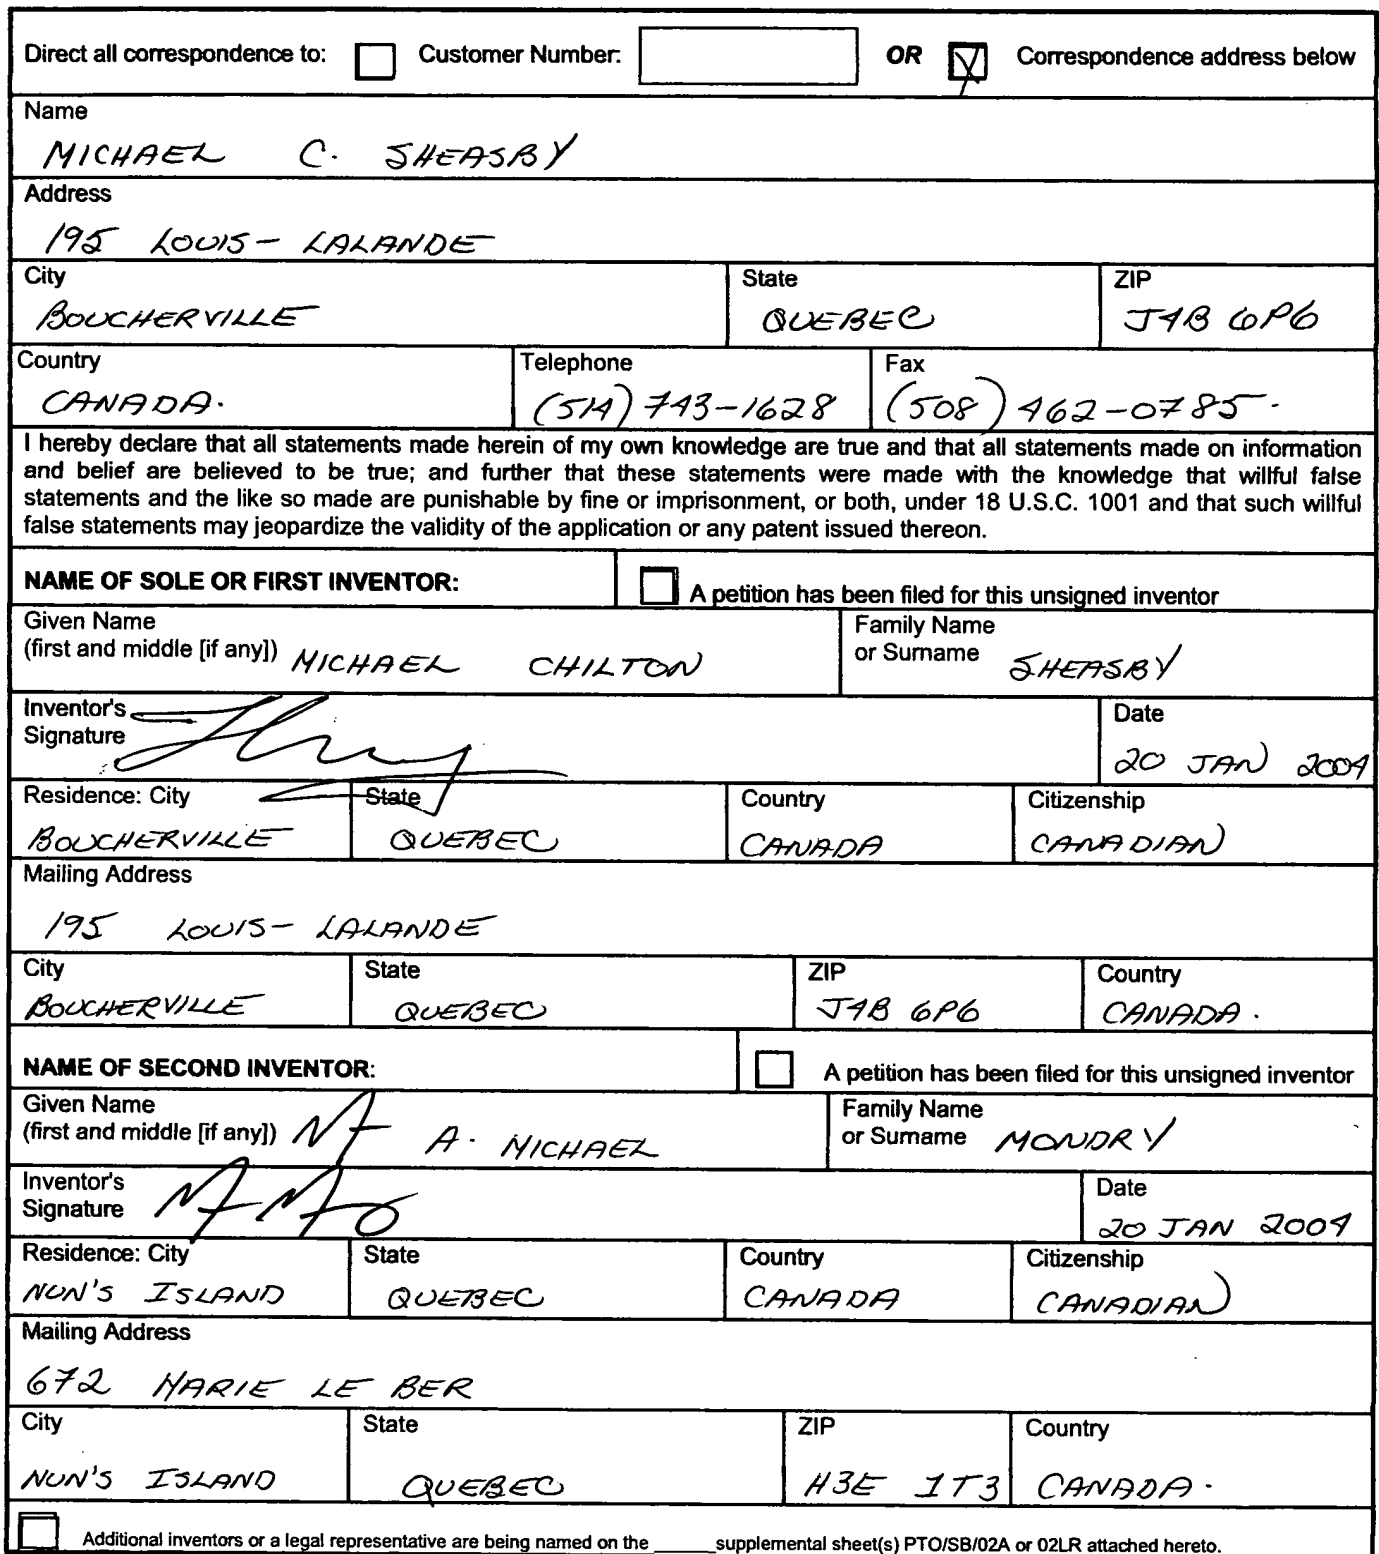 Direct all correspondence to: Customer Number: OR Correspondence address below
Name
MICHAEL C. SHEASBY
Address
195 LOUIS-LALANDE
City State ZIP
BOUCHERVILLE QUEBEC J4B 6P6
Country Telephone Fax
CANADA. (514) 743-1628 (508) 462-0785.
I hereby declare that all statements made herein of my own knowledge are true and that all statements made on information
and belief are believed to be true; and further that these statements were made with the knowledge that willful false
statements and the like so made are punishable by fine or imprisonment, or both, under 18 U.S.C. 1001 and that such willful
false statements may jeopardize the validity of the application or any patent issued thereon.
NAME OF SOLE OR FIRST INVENTOR: A petition has been filed for this unsigned inventor
Given Name Family Name
(first and middle [if any]) MICHAEL CHILTON or Surname SHEASBY
Inventor's Date
Signature 20 JAN 2004
Residence: City State Country Citizenship
BOUCHERVILLE QUEBEC CANADA CANADIAN
Mailing Address
195 LOUIS-LALANDE
City State ZIP Country
BOUCHERVILLE QUEBEC J4B 6P6 CANADA.
NAME OF SECOND INVENTOR: A petition has been filed for this unsigned inventor
Given Name Family Name
(first and middle [if any]) A. MICHAEL or Surname MONDRY
Inventor's Date
Signature 20 JAN 2004
Residence: City State Country Citizenship
NUN'S ISLAND QUEBEC CANADA CANADIAN
Mailing Address
672 MARIE LE BER
City State ZIP Country
NUN'S ISLAND QUEBEC H3E 1T3 CANADA.
Additional inventors or a legal representative are being named on the ______ supplemental sheet(s) PTO/SB/02A or 02LR attached hereto.